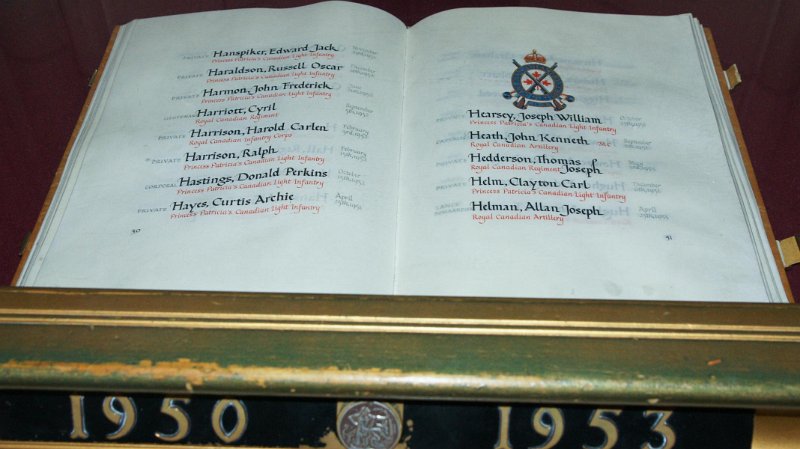 PRIVATE Hanspiker, Edward Jack November
Princess Patricia's Canadian Light Infantry
PRIVATE Haraldson, Russell Oscar
Princess Patricia's Canadian Light Infantry
PRIVATE Harmon, John Frederick
Princess Patricia's Canadian Light Infantry
Harriott, Cyril September
Royal Canadian Regiment
PRIVATE Harrison, Harold Carlen February
Royal Canadian Infantry Corps
PRIVATE Harrison, Ralph February
Princess Patricia's Canadian Light Infantry
CORPORAL Hastings, Donald Perkins October
Princess Patricia's Canadian Light Infantry
PRIVATE Hayes, Curtis Archie April
Princess Patricia's Canadian Light Infantry
30
PRIVATE Hearsey, Joseph William October
Princess Patricia's Canadian Light Infantry
Heath, John Kenneth September
Royal Canadian Artillery
PRIVATE Hedderson, Thomas Joseph
Royal Canadian Regiment
PRIVATE Helm, Clayton Carl
Princess Patricia's Canadian Light Infantry
LANCE BOMBARDIER Helman, Allan Joseph April
Royal Canadian Artillery
31
1950 1953